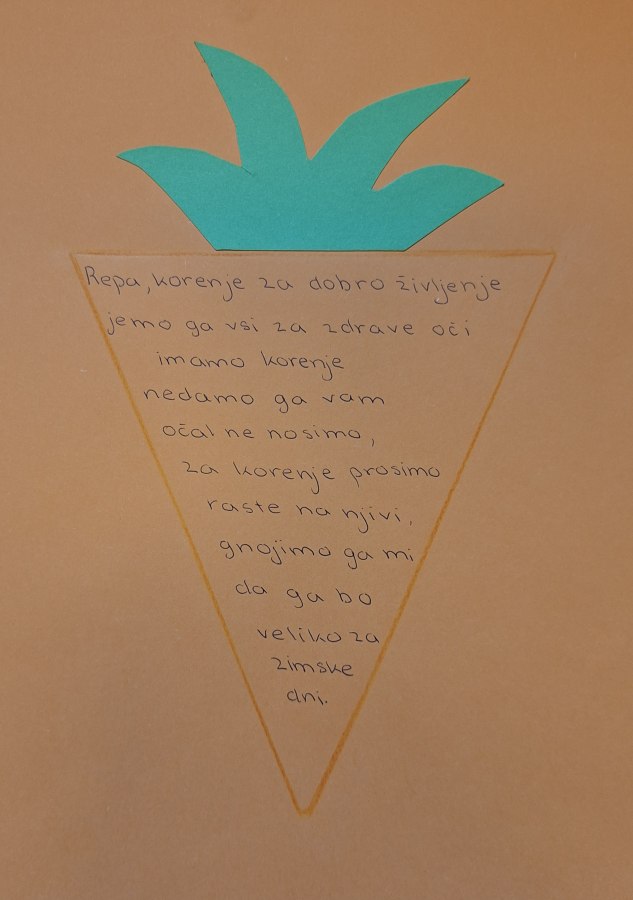 Repa, korenje za dobro življenje
jemo ga vsi za zdrave oči
imamo korenje
nedamo ga vam
očal ne nosimo,
za korenje prosimo
raste na njivi,
gnojimo ga mi
da ga bo
veliko za
zimske
dni.